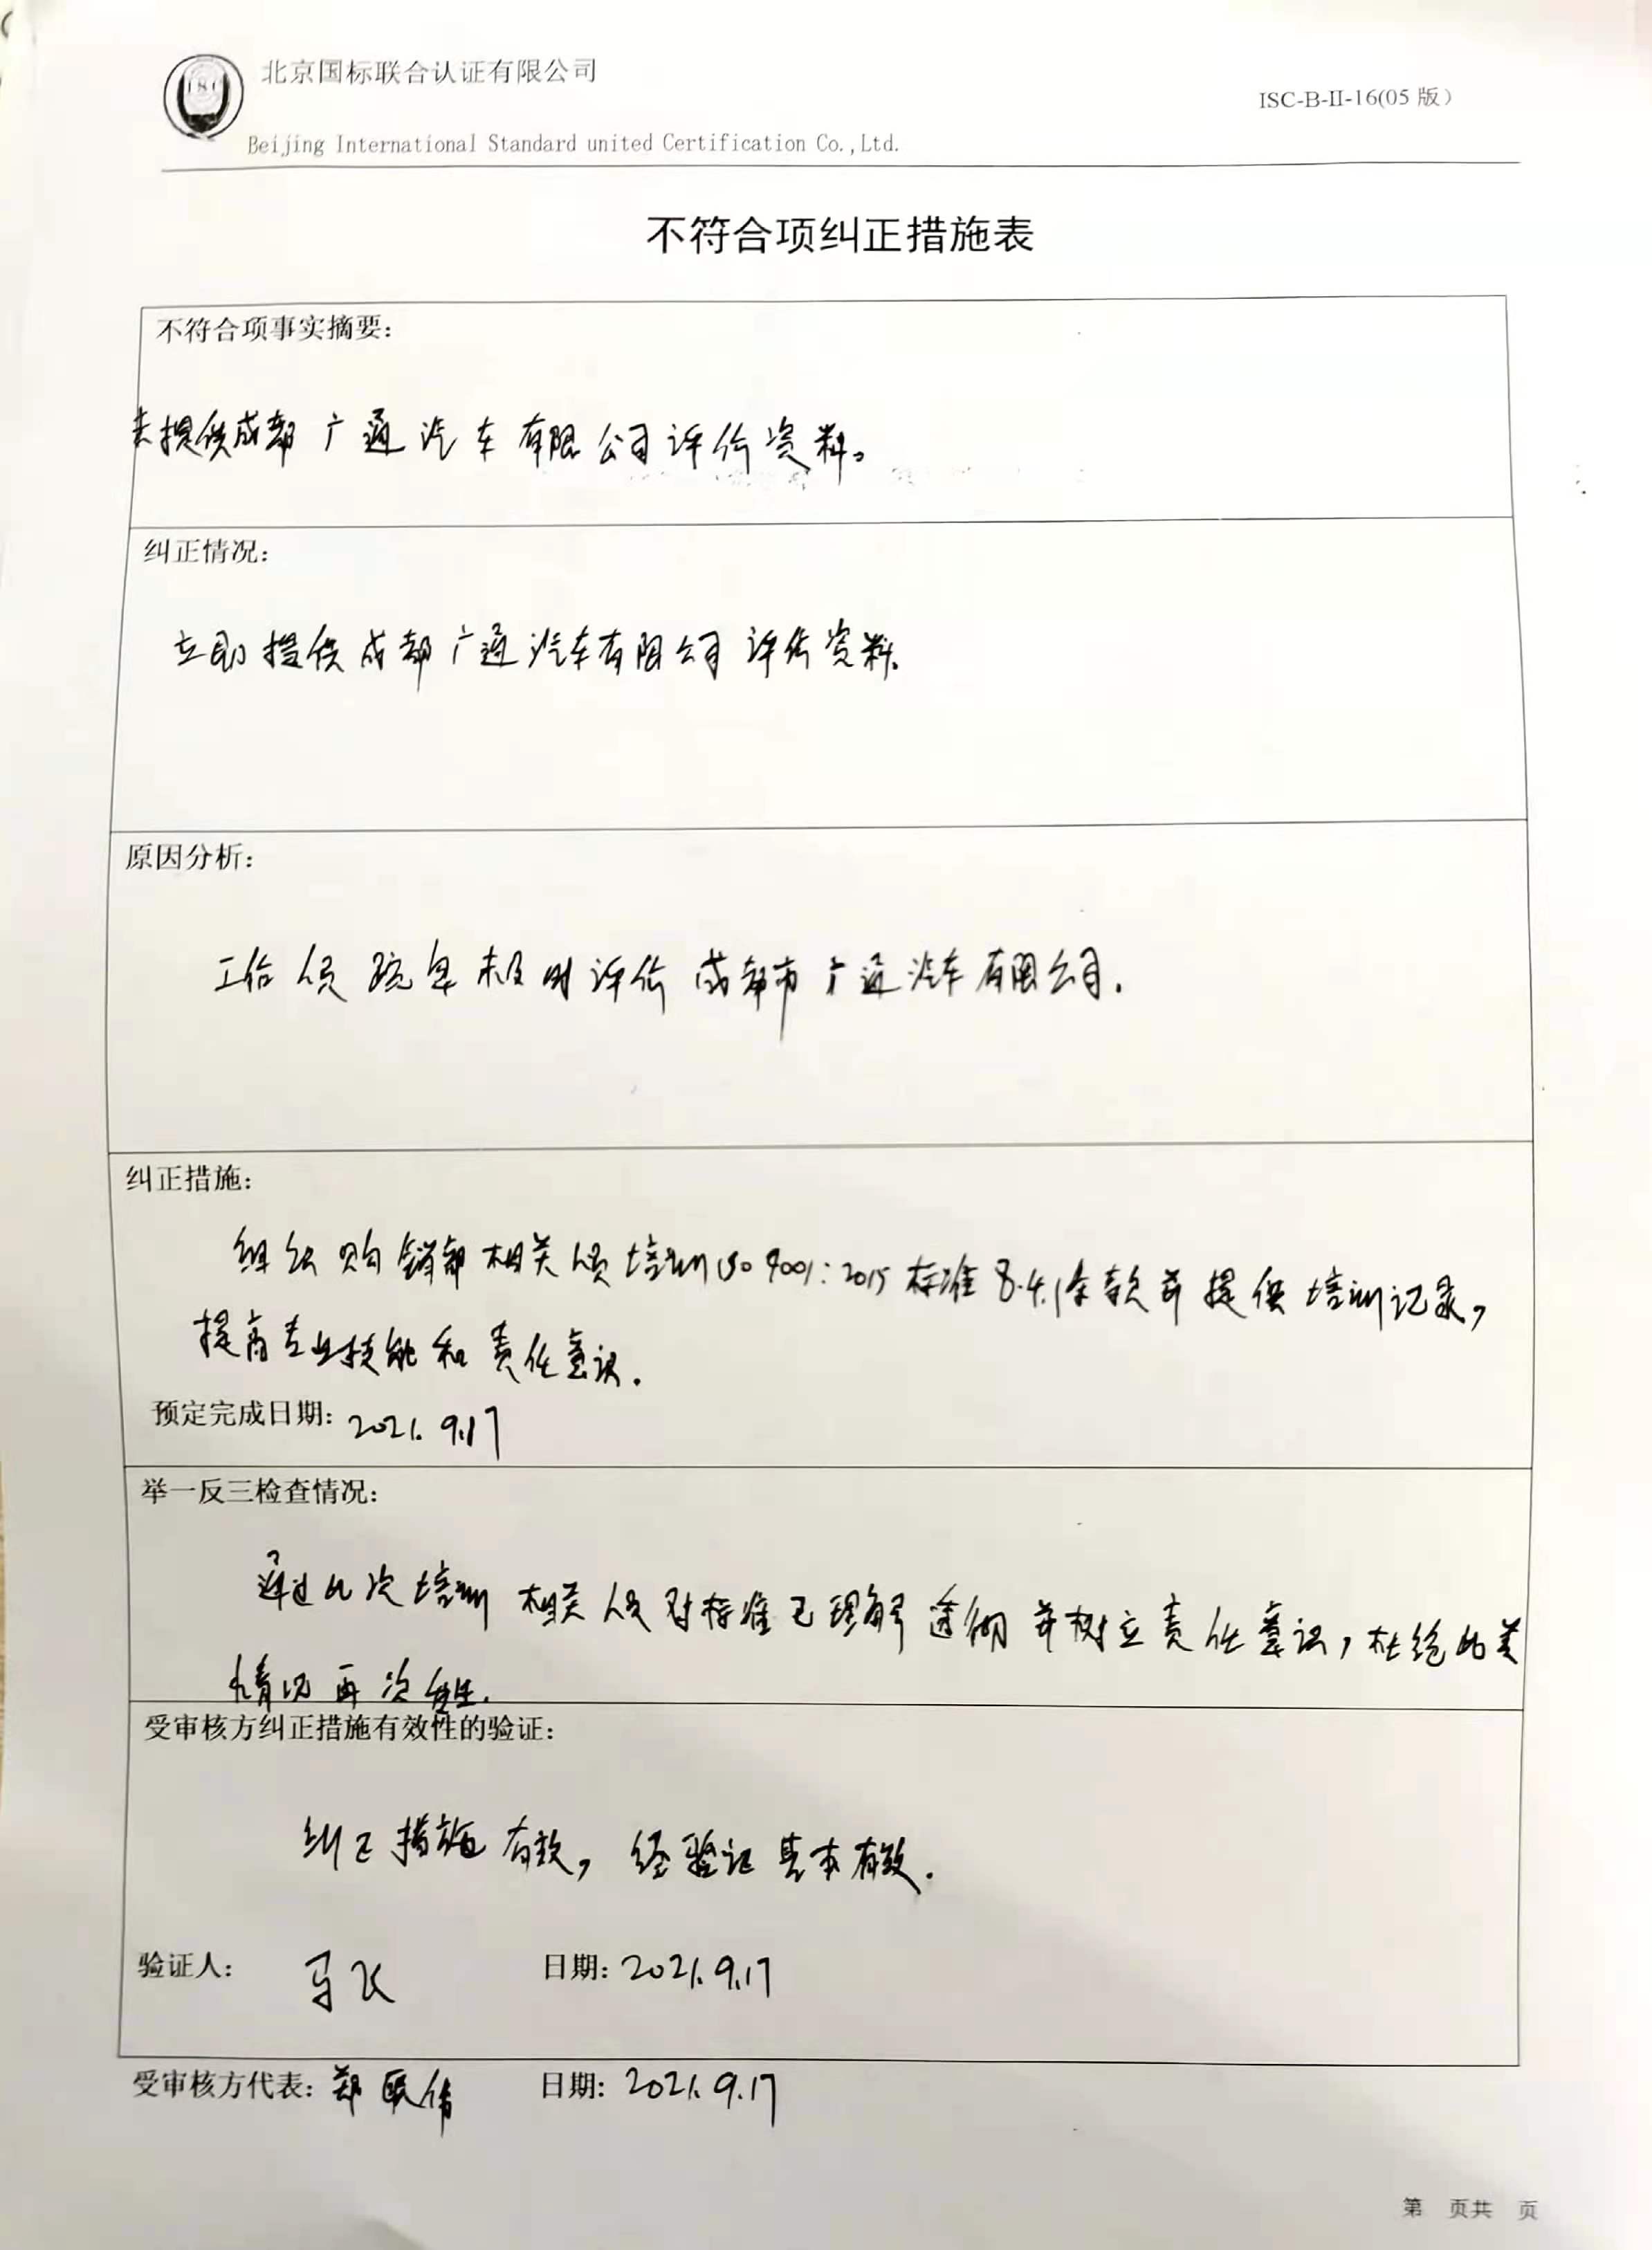 北京国标联合认证有限公司
ISC-B-II-16(05 版)
Beijing International Standard united Certification Co.,Ltd.
不符合项纠正措施表
不符合项事实摘要:
未提供成都广通汽车有限公司评价资料。
纠正情况:
立即提供成都广通汽车有限公司评价资料.
原因分析:
工作人员疏忽未及时评价成都市广通汽车有限公司.
纠正措施:
组织购销部相关人员培训ISO 9001:2015标准8.4.1条款并提供培训记录,
提高专业技能和责任意识.
预定完成日期: 2021.9.17
举一反三检查情况:
通过此次培训 相关人员对标准已理解透彻并树立责任意识,杜绝此类
情况再次发生.
受审核方纠正措施有效性的验证:
纠正措施有效, 经验证基本有效.
验证人: 马飞 日期: 2021.9.17
受审核方代表: 郑 日期: 2021.9.17
第 页共 页